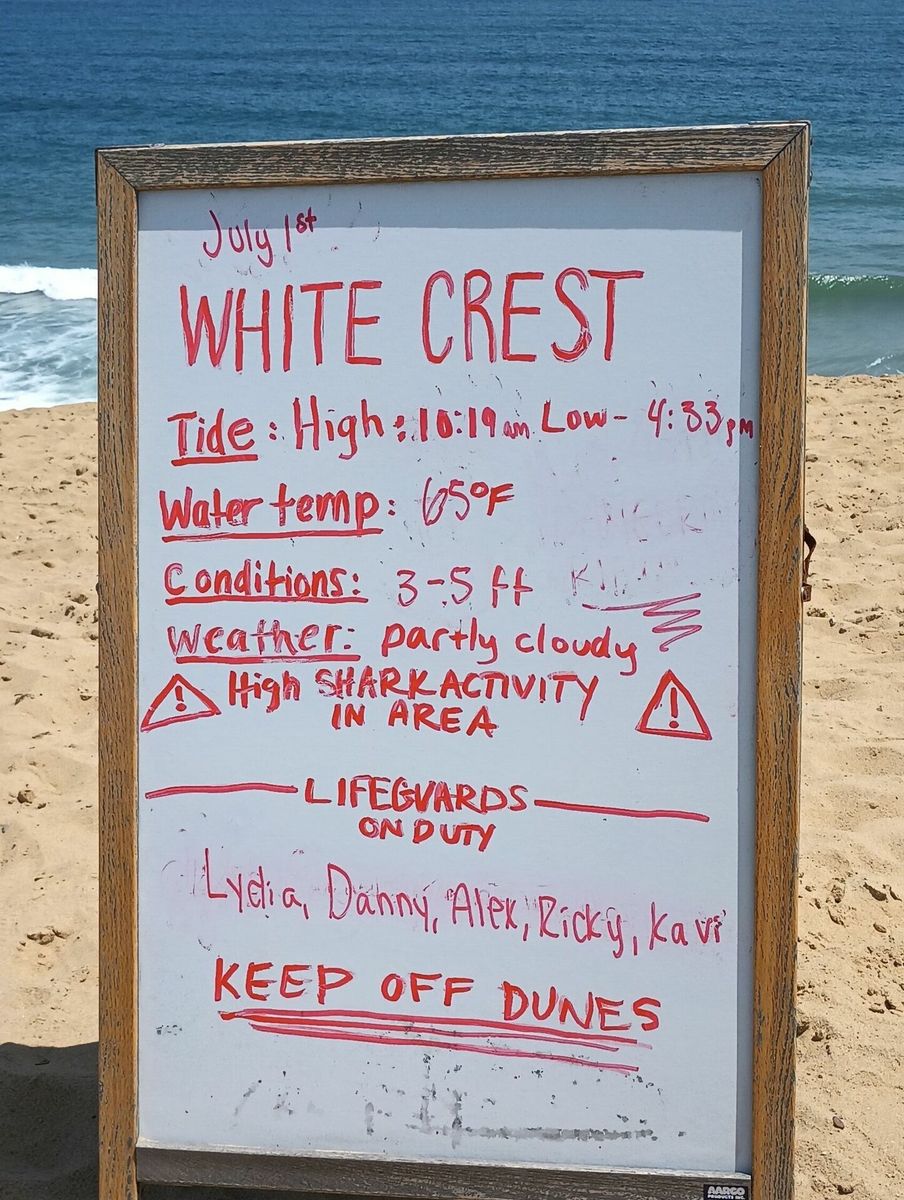 July 1st
WHITE CREST
Tide: High: 10:19 am Low- 4:33 pm
Water temp: 65°F
Conditions: 3-5 ft
Weather: partly cloudy
High SHARK ACTIVITY
IN AREA
LIFEGUARDS
ON DUTY
Lydia, Danny, Alex, Ricky, Kavi
KEEP OFF DUNES
AARCO
PRODUCTS INC.